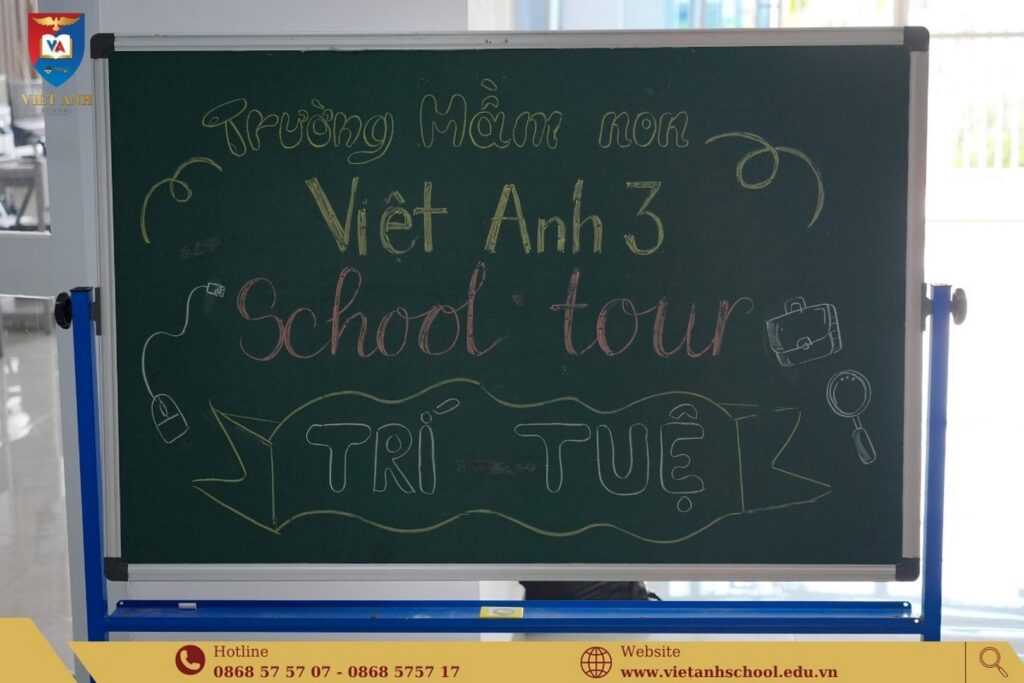 VA
VIET ANH
SCHOOL
Trường Mầm non
Việt Anh 3
School tour
TRÍ TUỆ
Hotline
0868 57 57 07 - 0868 5757 17
Website
www.vietanhschool.edu.vn